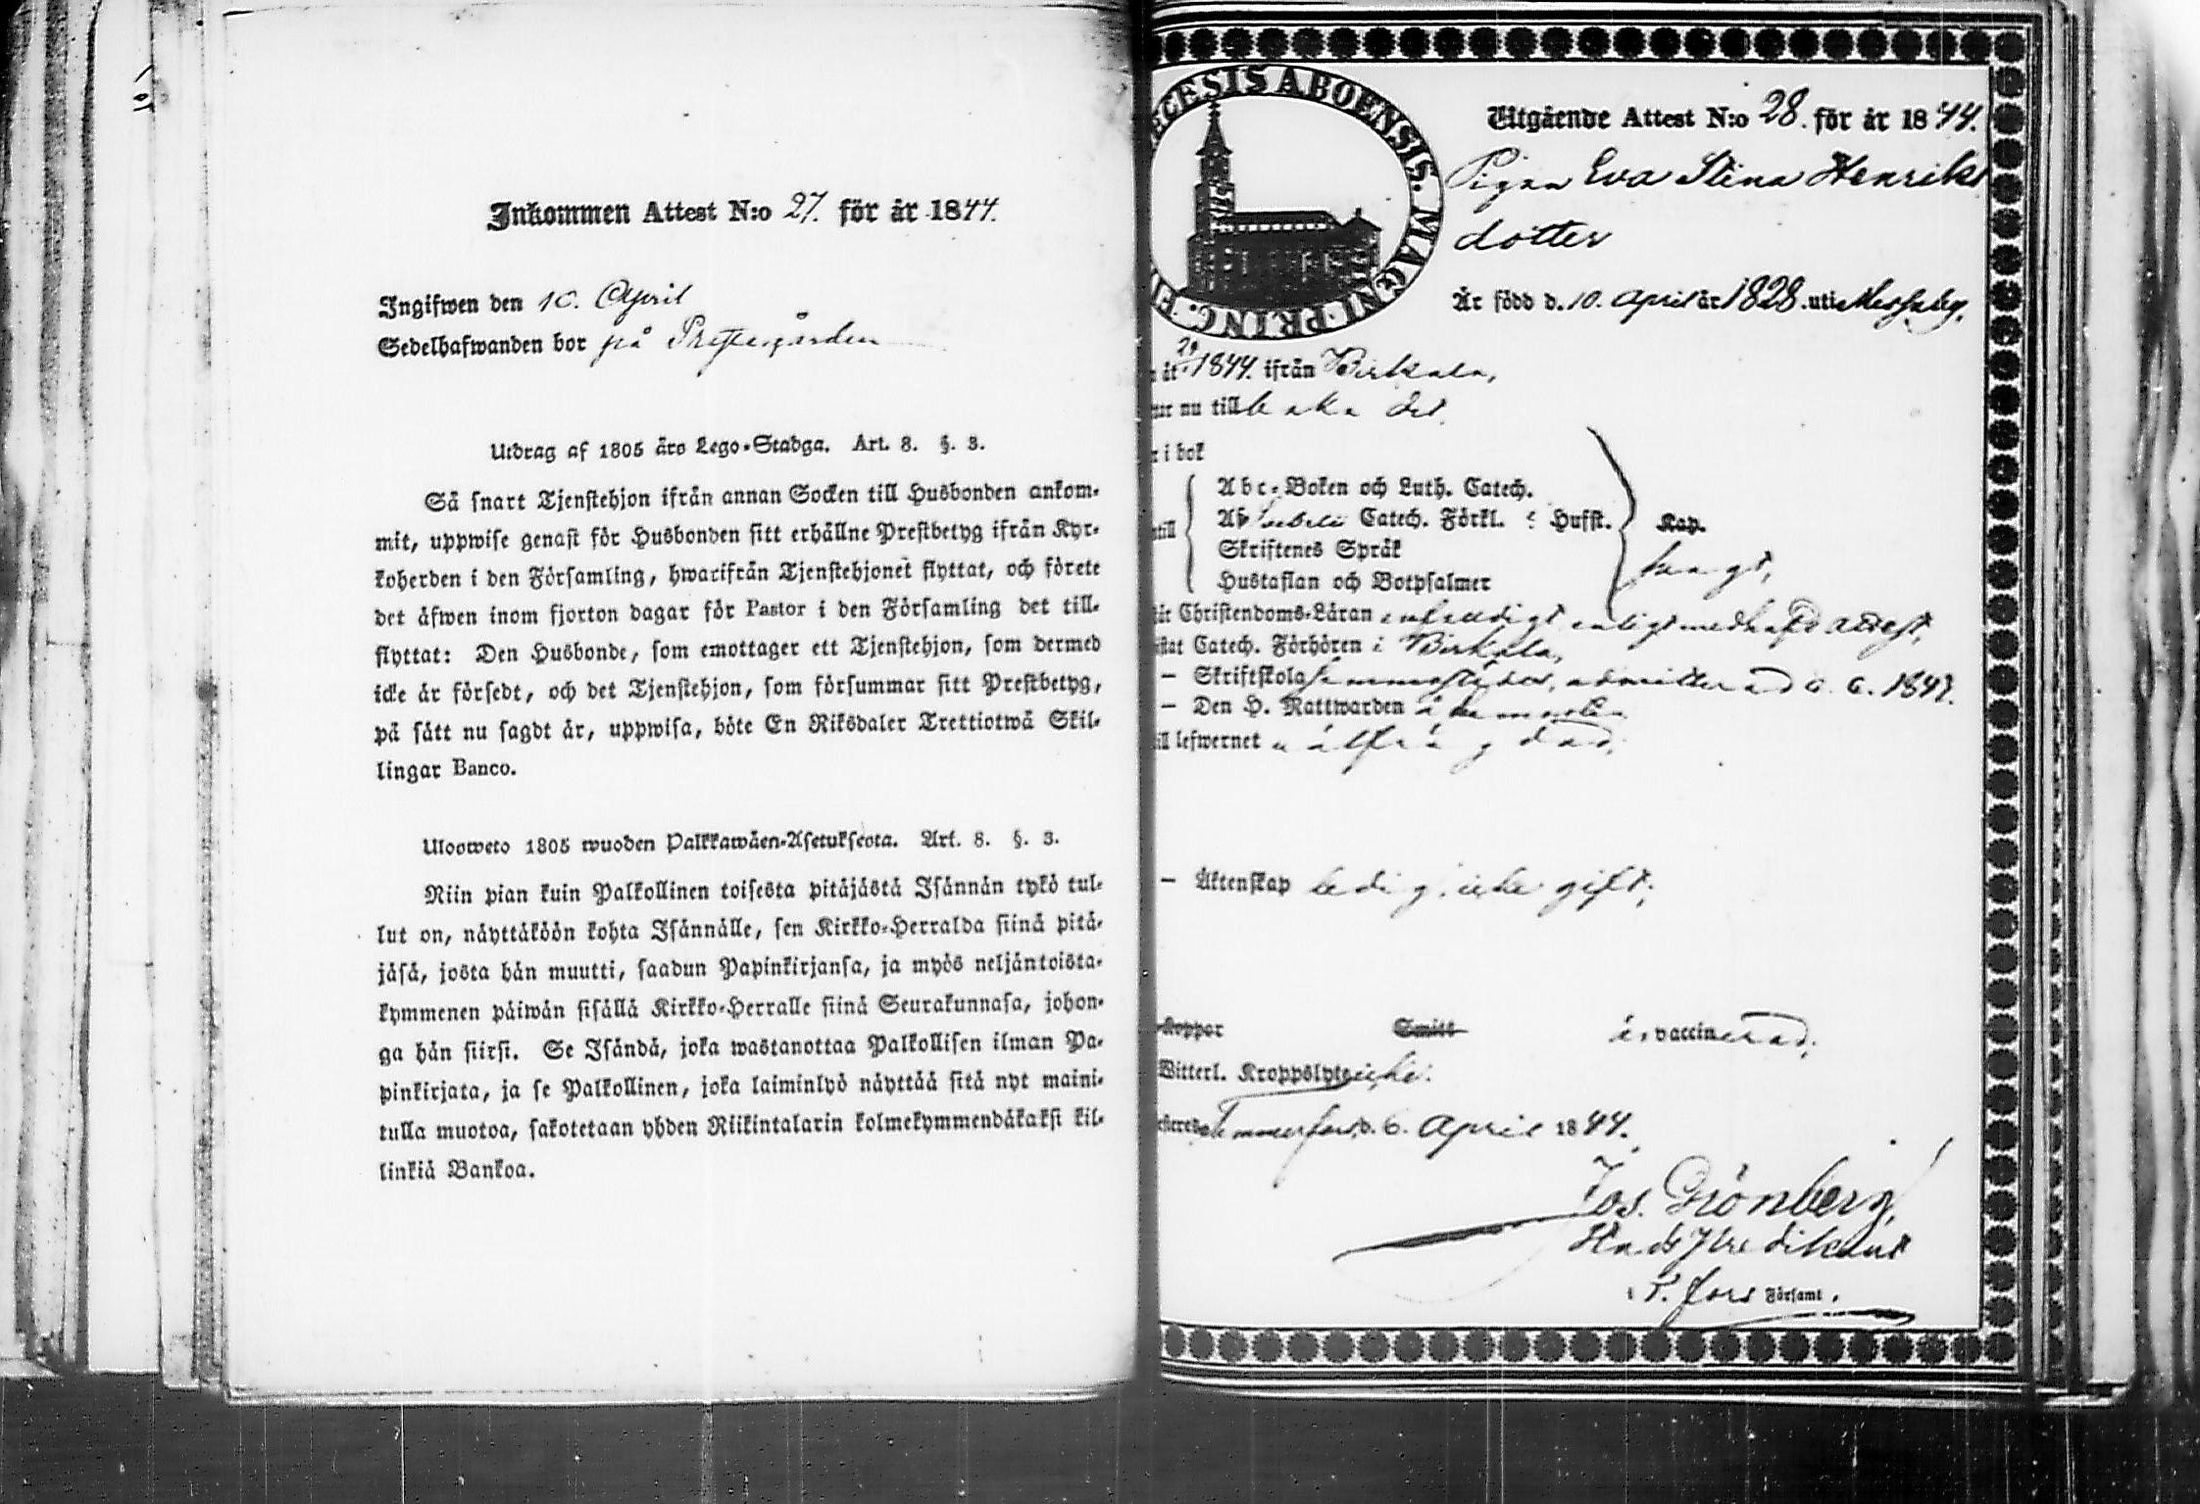 Inkommen Attest N:o 27. för år 1844.
Ingifwen den 10. April
Sedelhafwanden bor på Prestegården
Utdrag af 1805 års Lego-Stadga. Art. 8. §. 3.
Så snart Tjenstehjon ifrån annan Socken till Husbonden ankom-
mit, uppwise genast för Husbonden sitt erhållne Prestbetyg ifrån Kyr-
koherden i den Församling, hwarifrån Tjenstehjonet flyttat, och förete
det äfwen inom fjorton dagar för Pastor i den Församling det till-
flyttat: Den Husbonde, som emottager ett Tjenstehjon, som dermed
icke är försedt, och det Tjenstehjon, som försummar sitt Prestbetyg,
på sätt nu sagdt är, uppwisa, böte En Riksdaler Trettiotwå Skil-
lingar Banco.
Ulosweto 1805 wuoden Palkkawäen-Asetuksesta. Art. 8. §. 3.
Niin pian kuin Palkollinen toisesta pitäjästä Isännän tykö tul-
lut on, näyttäköön kohta Isännälle, sen Kirkko-Herralda siinä pitä-
jäsä, josta hän muutti, saadun Papinkirjansa, ja myös neljäntoista-
kymmenen päiwän sisällä Kirkko-Herralle siinä Seurakunnasa, johon-
ga hän siirsi. Se Isändä, joka wastanottaa Palkollisen ilman Pa-
pinkirjata, ja se Palkollinen, joka laiminlyö näyttää sitä nyt maini-
tulla muotoa, sakotetaan yhden Riikintalarin kolmekymmendäkaksi kil-
linkiä Bankoa.
ECESIS ABOENSIS. MAGNI PRINC. F
Utgående Attest N:o 28. för år 1844.
Pigan Eva Stina Henriks
dotter
Är född d. 10. April år 1828. uti Messuby.
år 1844. ifrån Birkala,
nu tillbaka dit.
i bok
Abc-Boken och Luth. Catech.
Catech. Förkl. Husst.
Skriftenes Språk
Hustaflan och Botpsalmer
Kap.
Christendoms-Läran enfaldigt enligt medhafd attest,
Catech. Förhören i Birkala,
— Skriftskola sammastädes, admitterad 1843.
— Den H. Nattwarden
lefwernet oälfrägdad,
— Äktenskap ledig, icke gift;
Koppor Smitt är vaccinerad;
Witterl. Kroppslyte icke.
Tammerfors, d. 6. April 1844.
Jos. Grönberg,
Predikant
i T. fors Församl.